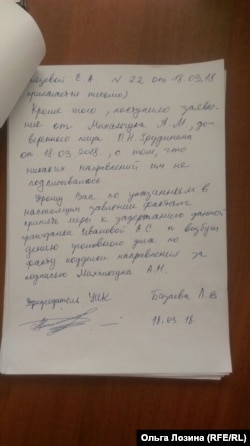 Е А N 22 от 18.03.18
письмо)
Кроме того, поступило заявле-
ние от Михальчука А.М., до-
веренного лица П.Н. Грудинина
от 18.03.2018, о том, что
никаких направлений им не
подписывалось.
Прошу Вас по указанным в
настоящем заявлении фактам
принять меры к задержанию данной
гражданки Ивановой А.С и возбуж
дению уголовного дела по
факту подделки направления за
подписью Михальчука А.М.
Председатель УИК
Л.В
18.03.18
Ольга Лозина (RFE/RL)